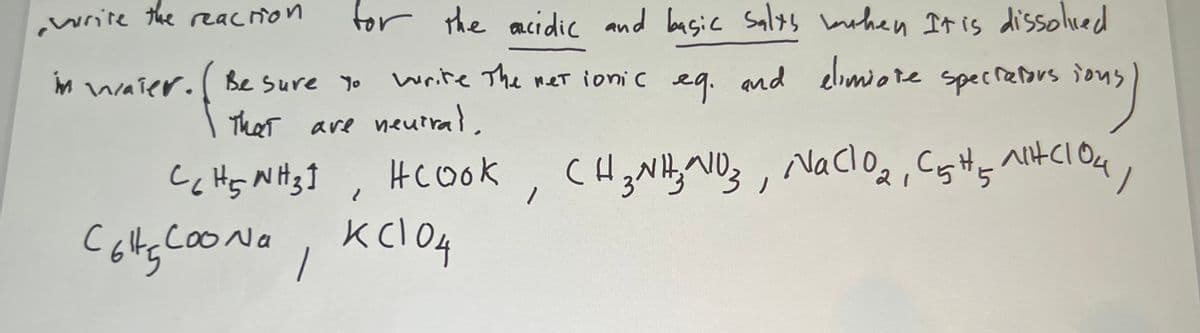 write the reaction for the acidic and basic Salts when It is dissolved
in water. ( Be sure to write The net ionic eq. and elimiate spectators ions )
That are neutral.
C6H5NH3I , HCOOK , CH3NH3NO3 , NaClO2 , C5H5NHClO4 ,
C6H5COONa , KClO4